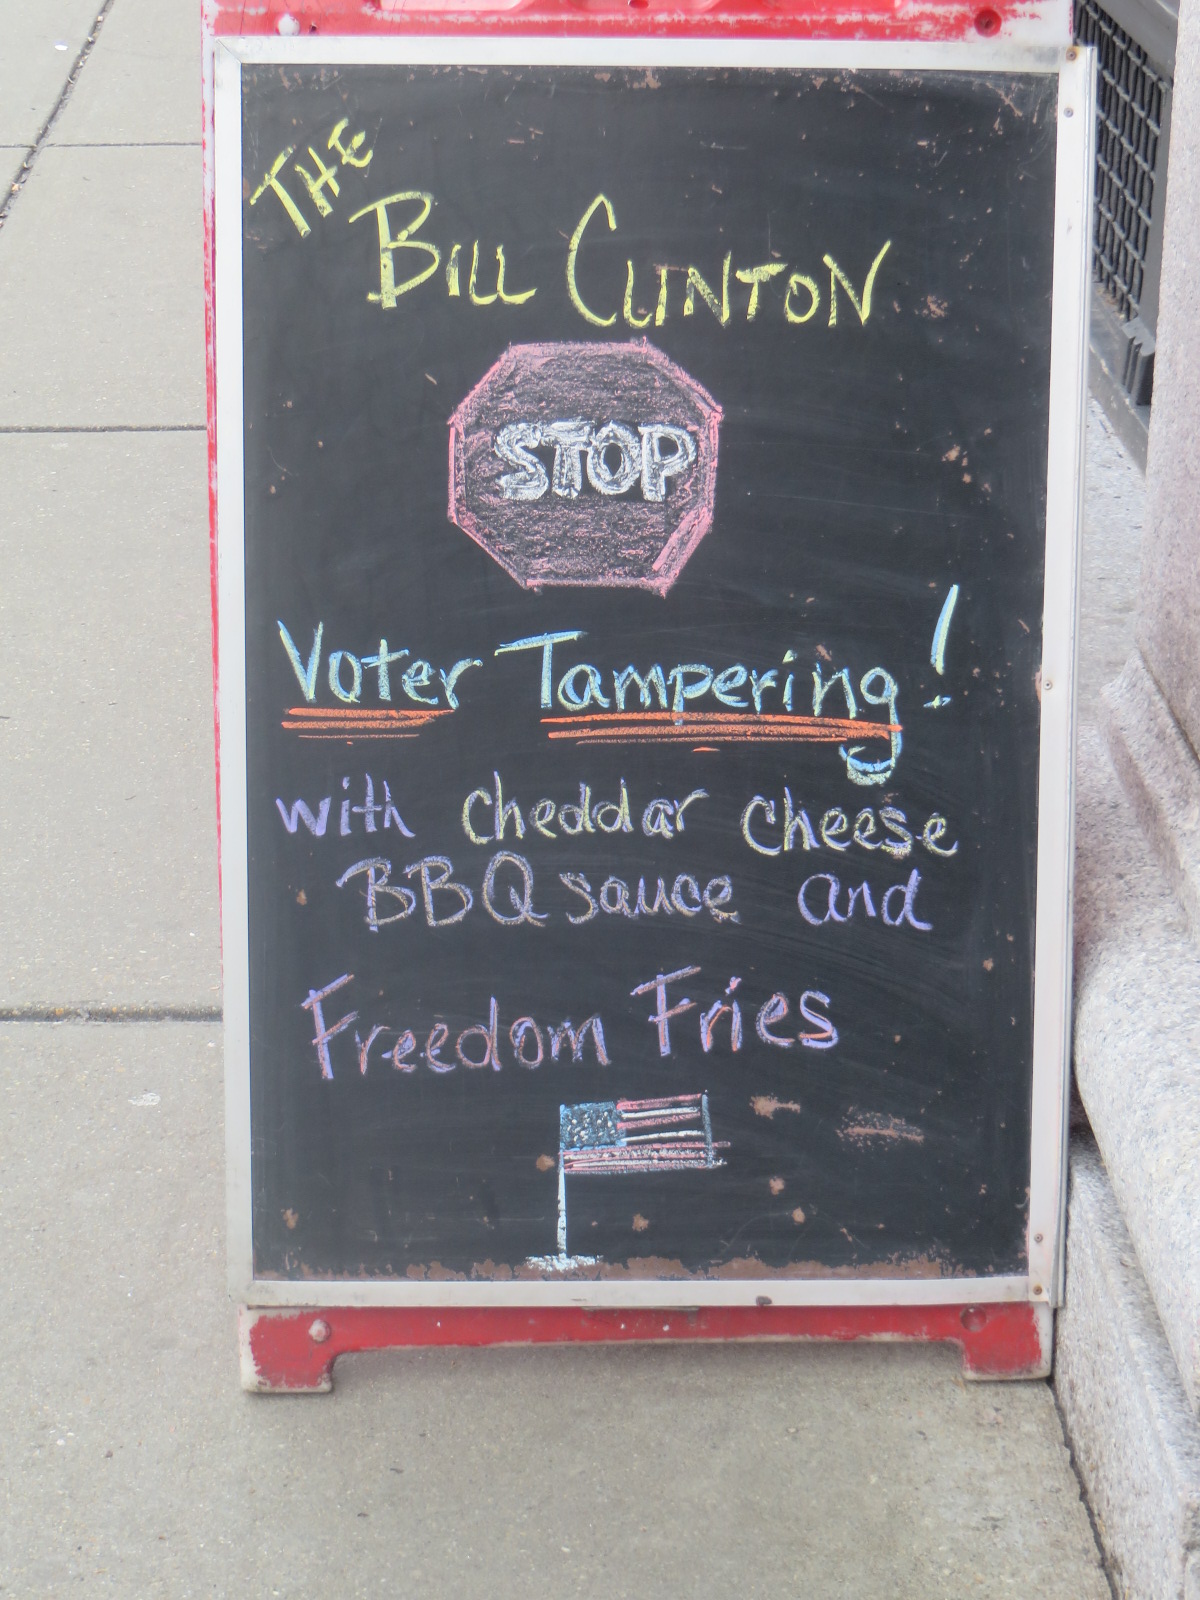 THE
BILL CLINTON
STOP
Voter Tampering!
with cheddar cheese
BBQ sauce and
Freedom Fries